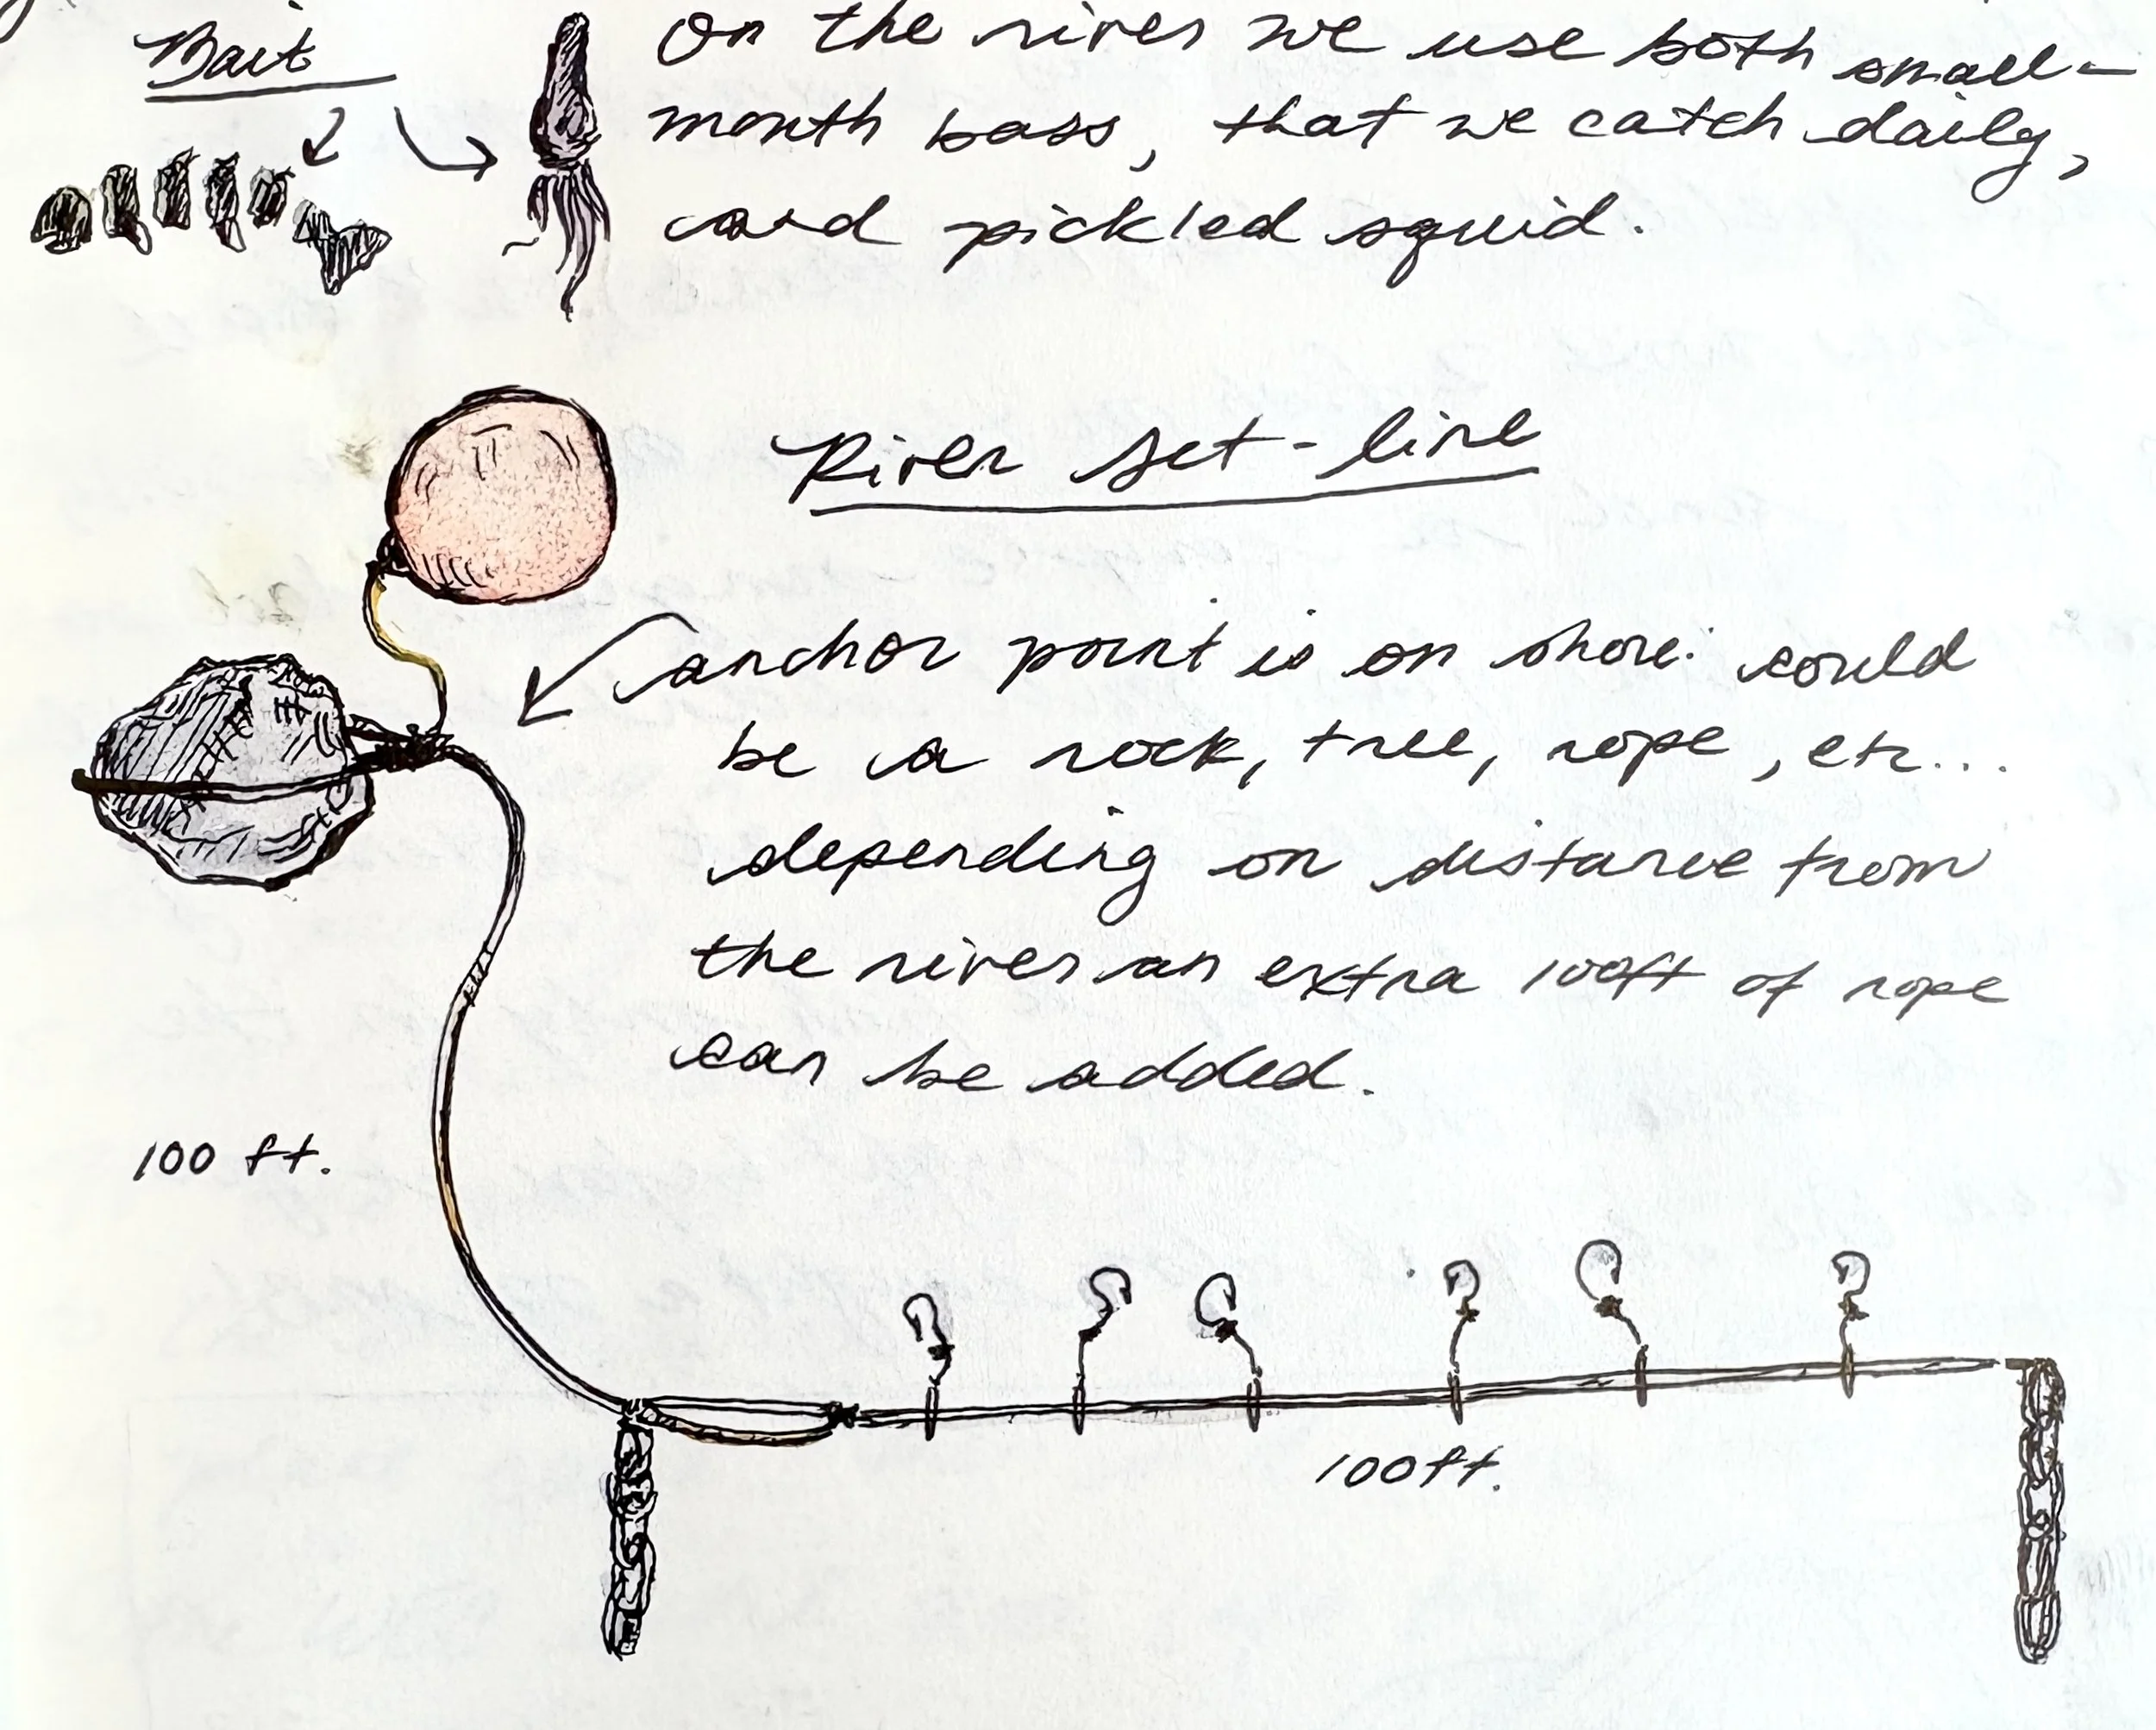 Bait
On the river we use both small-
mouth bass, that we catch daily,
and pickled squid.
River set-line
anchor point is on shore: could
be a rock, tree, rope, etc...
depending on distance from
the river an extra 100ft of rope
can be added.
100 ft.
100ft.